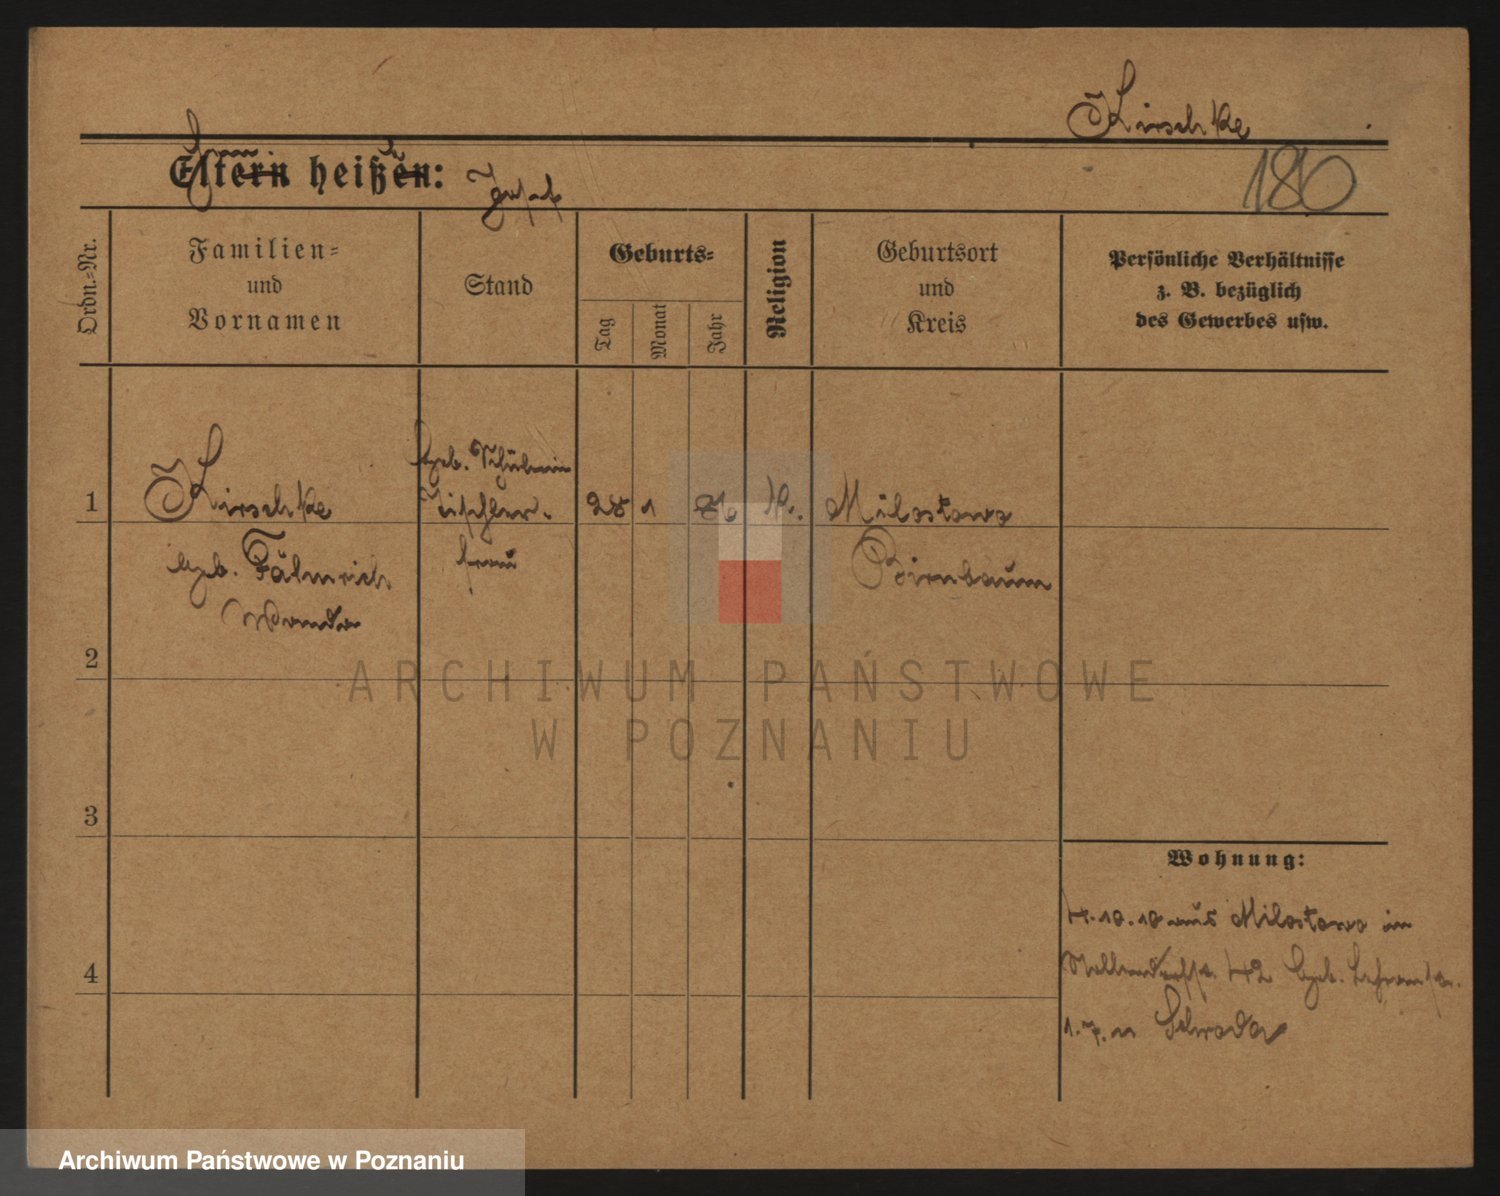 Kirschke
Eltern heißen:
Josef
180
Ordn.-Nr.
Familien=
und
Vornamen
Stand
Geburts=
Tag
Monat
Jahr
Religion
Geburtsort
und
Kreis
Persönliche Verhältnisse
z. B. bezüglich
des Gewerbes usw.
1
Kirschke
geb. Fähnrich
Wanda
Tischler-
frau
28
1
Milostowo
Birnbaum
2
3
4
Wohnung:
4.10.10 aus Milostowo in
42
Schroda
ARCHIWUM PAŃSTWOWE
W POZNANIU
Archiwum Państwowe w Poznaniu